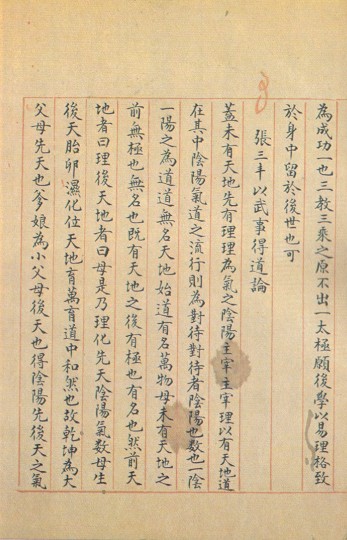 為成功一也三教三乘之原不出一太極願後學以易理格致
於身中留於後世也可
張三丰以武事得道論
蓋未有天地先有理理為氣之陰陽主宰主宰理以有天地道
在其中陰陽氣道之流行則為對待對待者陰陽也數也一陰
一陽之為道道無名天地始道有名萬物母未有天地之
前無極也無名也既有天地之後有極也有名也然前天
地者曰理後天地者曰母是乃理化先天陰陽氣數母生
後天胎卵濕化位天地育萬育道中和然也故乾坤為大
父母先天也爹娘為小父母後天也得陰陽先後天之氣